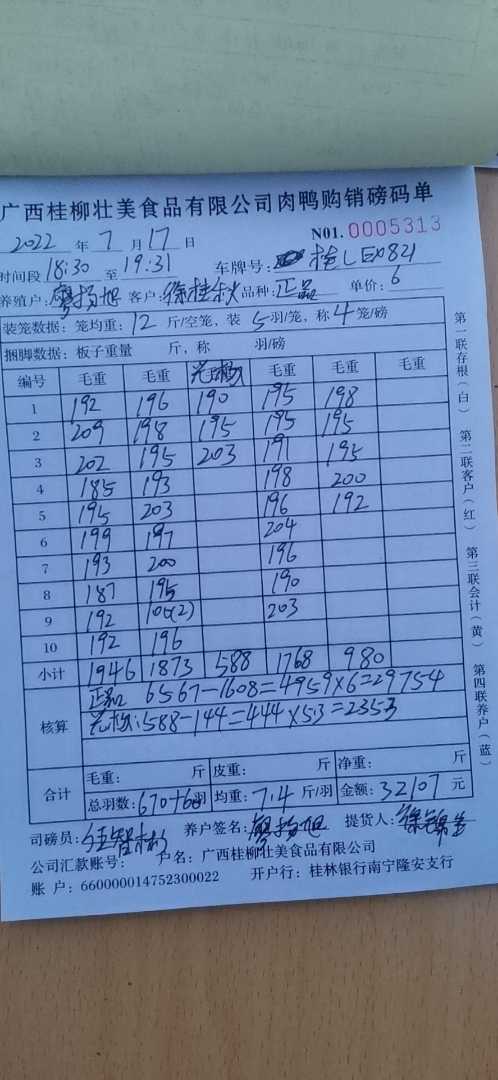 广西桂柳壮美食品有限公司肉鸭购销磅码单
N01. 0005313
2022 年 7 月 17 日
时间段 18:30 至 19:31 车牌号: 桂LE0821
养殖户: 廖扬旭 客户: 徐桂秋 品种: 正品 单价: 6
装笼数据: 笼均重: 12 斤/空笼, 装 5 羽/笼, 称 4 笼/磅
捆脚数据: 板子重量 斤, 称 羽/磅
编号 毛重 毛重 毛重 毛重 毛重
1 192 196 190 195 198
2 209 198 195 195 195
3 202 195 203 191 195
4 185 193 198 200
5 195 203 196 192
6 199 197 204
7 193 200 196
8 187 195 190
9 192 100(2) 203
10 192 196
小计 1946 1873 588 1768 980
核算
正品 6567-1608=4959×6=29754
588-144=444×5.3=2353
合计
毛重: 斤 皮重: 斤 净重: 斤
总羽数: 670+60羽 均重: 7.4 斤/羽 金额: 32107 元
司磅员: 养户签名: 廖扬旭 提货人: 徐锦
公司汇款账号: 户名: 广西桂柳壮美食品有限公司
账 户: 660000014752300022 开户行: 桂林银行南宁隆安支行
第一联存根(白) 第二联客户(红) 第三联会计(黄) 第四联养户(蓝)